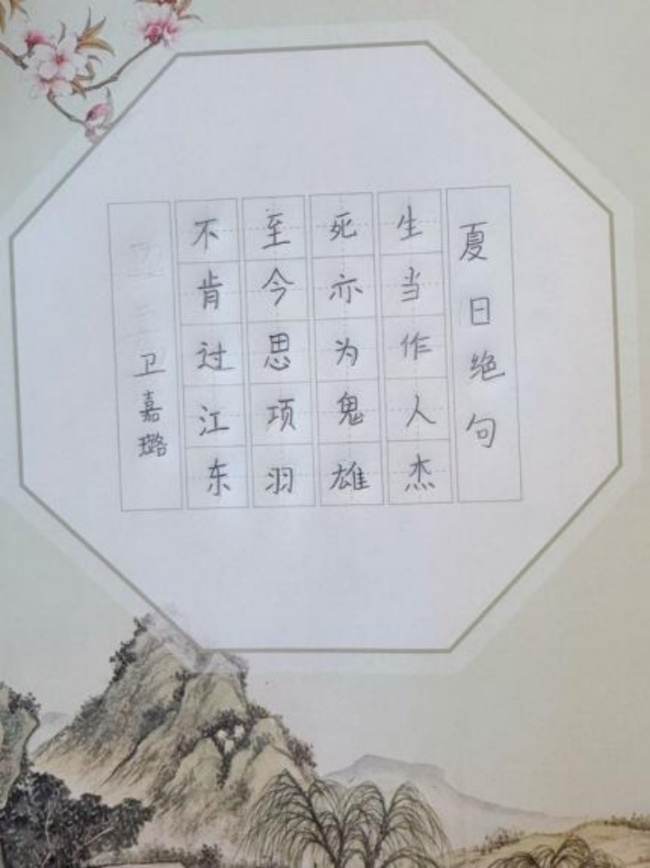 夏日绝句
生当作人杰
死亦为鬼雄
至今思项羽
不肯过江东
卫嘉璐